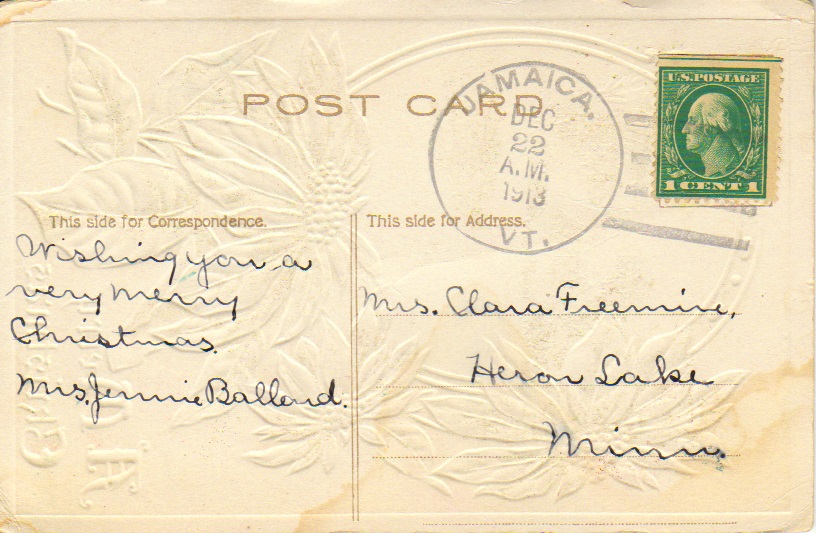 POST CARD
JAMAICA.
DEC
22
A.M.
1913
VT.
U.S. POSTAGE
1 CENT 1
This side for Correspondence.
Wishing you a
very merry
Christmas.
Mrs. Jennie Ballard.
This side for Address.
Mrs. Clara Freemire,
Heron Lake
Minn.